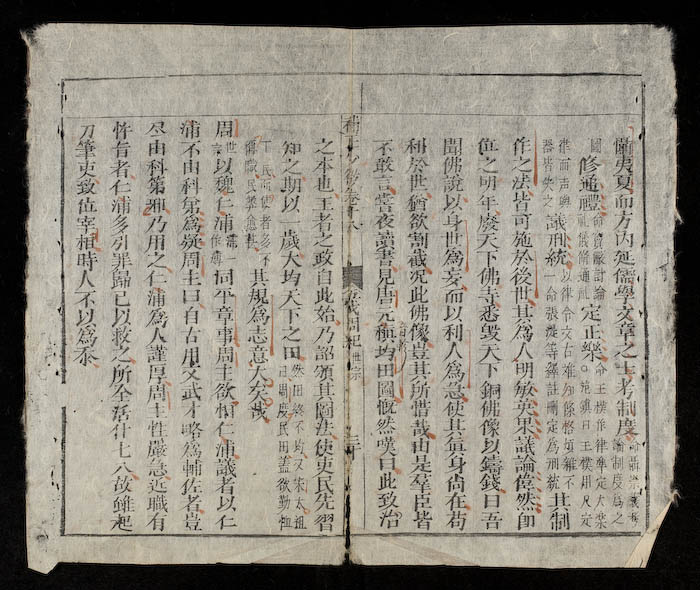 蘭夷夏而方內延儒學文章之士考制度
修通禮定正樂
議刑統其制
作之法皆可施於後世其爲人明敏英果議論偉然即
位之明年廢天下佛寺悉毀天下銅佛像以鑄錢曰吾
聞佛說以身世爲妄而以利人爲急使其眞身尚在苟
利於世猶欲割截况此佛像豈其所惜哉由是羣臣皆
不敢言嘗夜讀書見唐元稹均田圖慨然嘆曰此致治
卷十八 五代周紀 世宗 三十
之本也王者之政自此始乃詔頒其圖法使吏民先習
知之期以一歲大均天下之田
其規爲志意大矣哉
周世宗以魏仁浦同平章事周主欲相仁浦議者以仁
浦不由科第爲疑周主曰自古用文武才略爲輔佐者豈
盡由科第邪乃用之仁浦爲人謹厚周主性嚴急近職有
忤旨者仁浦多引罪歸己以救之所全活什七八故雖起
刀筆吏致位宰相時人不以爲忝